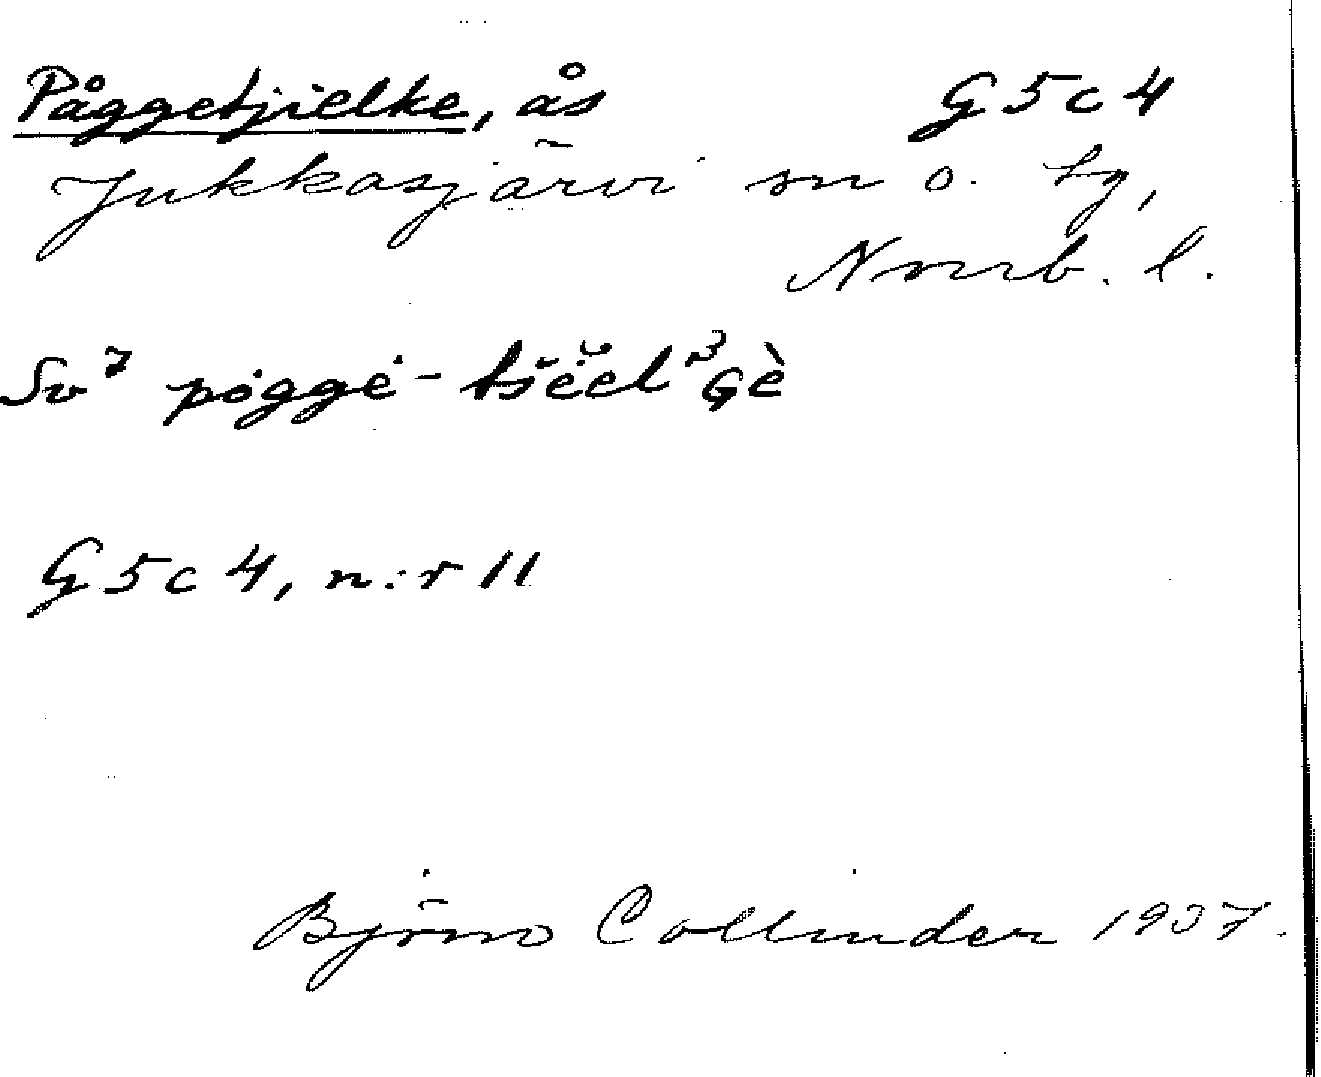 Påggetjielke, ås G5c4
Jukkasjärvi sn o. tg,
Norrb. l.
Sv⁷ pọggė-tšĕĕl³Gè
G5c4, n:r 11
Björn Collinder 1937.